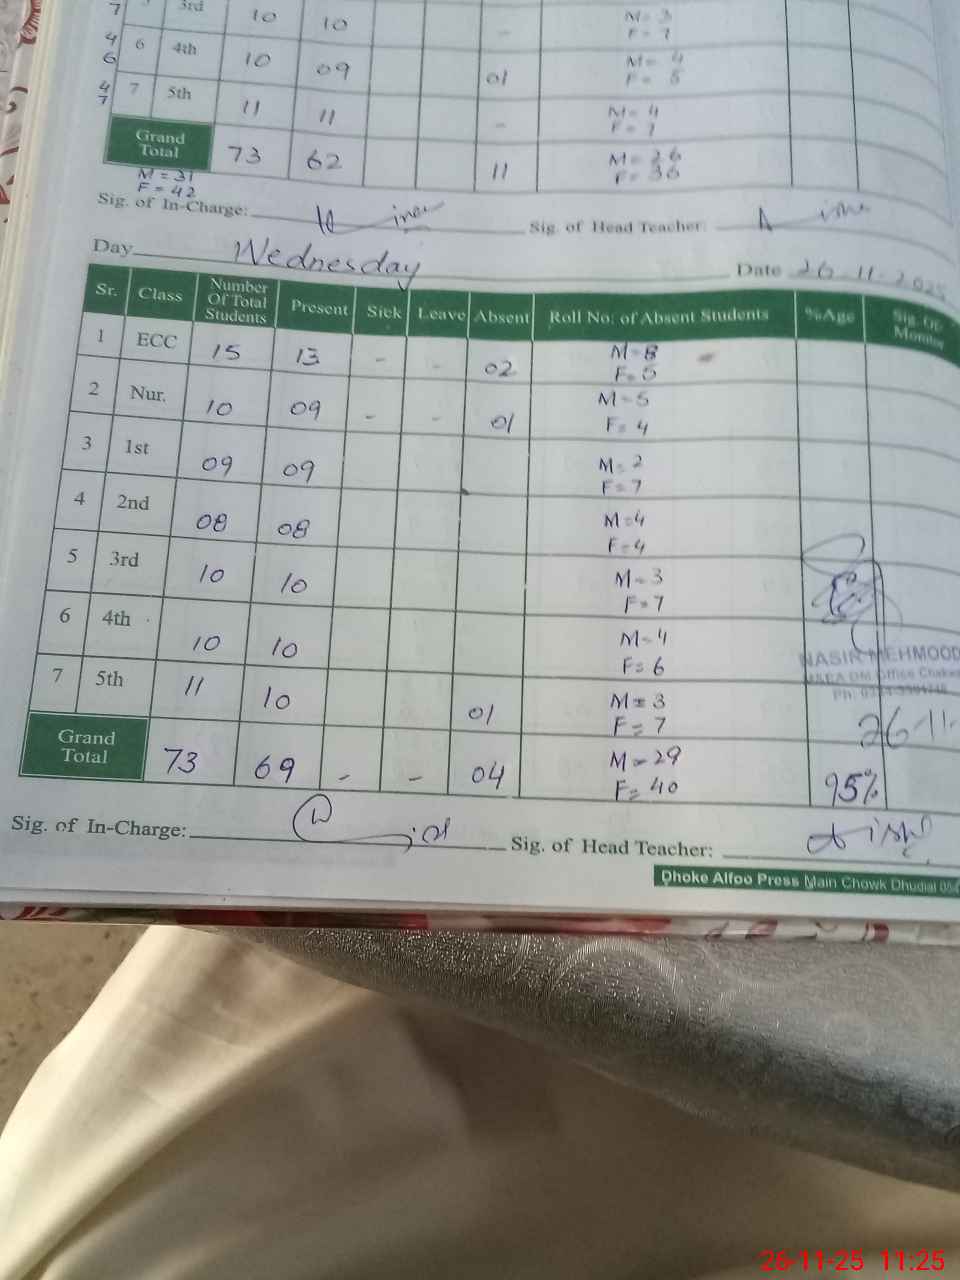 7 3rd 10 10 - M= 3
F= 7
4 6 4th 10 09 01 M= 4
6 F= 5
4 7 5th 11 11 - M= 4
7 F= 7
Grand Total 73 62 11 M= 26
F= 36
M = 31
F = 42
Sig. of In-Charge: Sig. of Head Teacher:
Day Wednesday Date 26-11-2025
Sr. Class Number Of Total Students Present Sick Leave Absent Roll No. of Absent Students %Age Sig. Of Monitor
1 ECC 15 13 - - 02 M=8
F=5
2 Nur. 10 09 - - 01 M=5
F= 4
3 1st 09 09 M=2
F=7
4 2nd 08 08 M=4
F=4
5 3rd 10 10 M=3
F=7
6 4th 10 10 M=4
F=6
NASIR MEHMOOD
DM Office
Ph:
7 5th 11 10 01 M=3
F=7
26-11-
Grand Total 73 69 - - 04 M=29
F= 40
95%
Sig. of In-Charge: Sig. of Head Teacher:
Dhoke Alfoo Press Main Chowk Dhudial
26-11-25 11:25